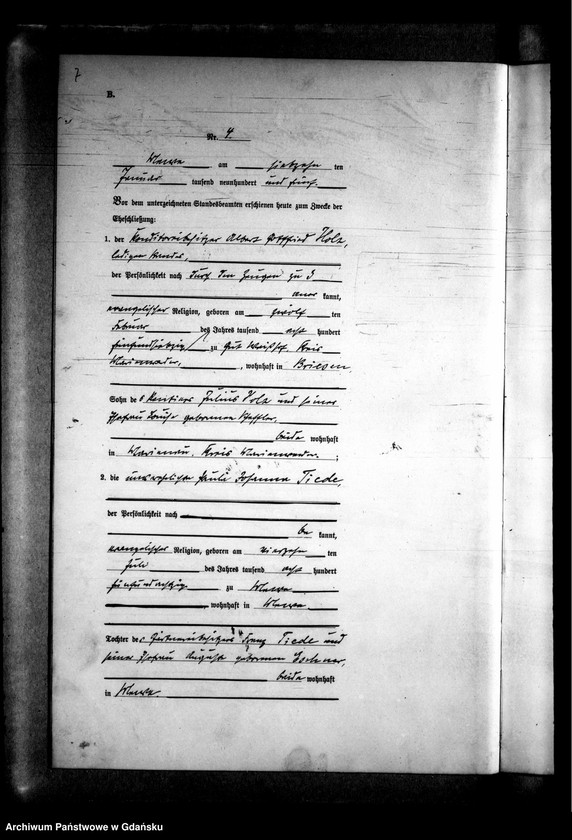 7
B.
Nr. 4.
Mewe am siebzehn ten
Januar tausend neunhundert und fünf.
Vor dem unterzeichneten Standesbeamten erschienen heute zum Zwecke der
Eheschließung:
1. der Konditoreibesitzer Albert Gottfried Holz,
ledigen Standes,
der Persönlichkeit nach durch den Zeugen zu 3
aner kannt,
evangelischer Religion, geboren am zwölf ten
Februar des Jahres tausend acht hundert
fünfundsiebzig zu Gut Weißhof, Kreis
Marienwerder, , wohnhaft in Briesen
Sohn des Rentiers Julius Holz und seiner
Ehefrau Louise geborenen
beide wohnhaft
in Marienau, Kreis Marienwerder. ;
2. die unverehelichte Johanna Tiede,
der Persönlichkeit nach
be kannt,
evangelischer Religion, geboren am vierzehn ten
Juli des Jahres tausend acht hundert
fünfundachtzig zu Mewe
wohnhaft in Mewe
Tochter des Gärtnereibesitzers Franz Tiede und
seiner Ehefrau Auguste geborenen
beide wohnhaft
in Mewe.
Archiwum Państwowe w Gdańsku